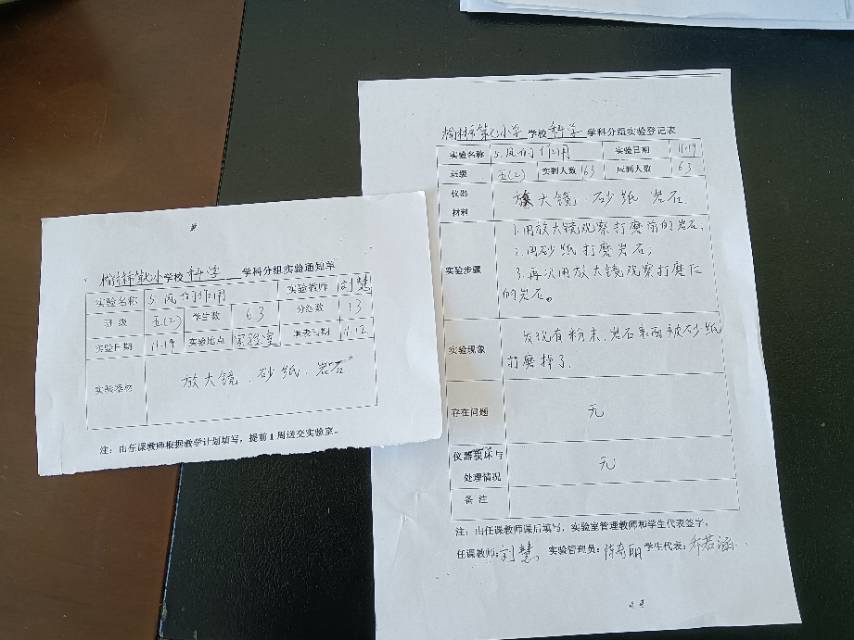 学校 科学 学科分组实验通知单
实验名称 5.风的作用 实验教师 刘慧
班级 五(2) 学生数 63 分组数 13
实验日期 11.19 实验地点 实验室 填表日期 11.12
实验器材 放大镜、砂纸、岩石
注：由任课教师根据教学计划填写，提前1周送交实验室。
学校 科学 学科分组实验登记表
实验名称 5.风的作用 实验日期 11.19
班级 五(2) 实到人数 63 应到人数 63
仪器
材料
放大镜 砂纸 岩石
实验步骤
1.用放大镜观察打磨前的岩石,
2.用砂纸打磨岩石,
3.再次用放大镜观察打磨后
的岩石。
实验现象
发现有粉末、岩石表面被砂纸
打磨掉了.
存在问题 无
仪器损坏与
处理情况
无
备注
注：由任课教师课后填写，实验室管理教师和学生代表签字。
任课教师:刘慧 实验管理员: 学生代表: